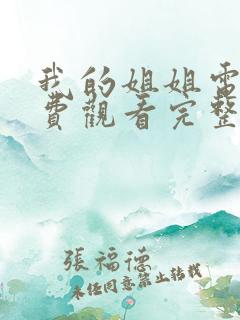 我的姐姐電
費觀看完整
張福德
未经同意禁止转载